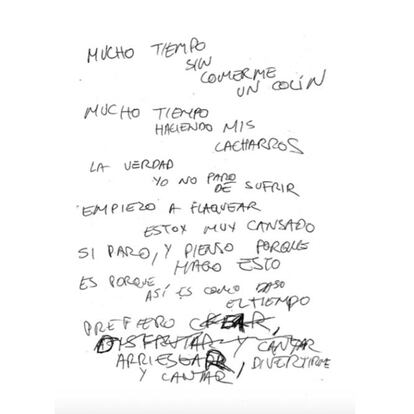 MUCHO TIEMPO
SIN
COMERME
UN COLÍN
MUCHO TIEMPO
HACIENDO MIS
CACHARROS
LA VERDAD
YO NO PARO
DE SUFRIR
EMPIEZO A FLAQUEAR
ESTOY MUY CANSADO
SI PARO, Y PIENSO PORQUE
HAGO ESTO
ES PORQUE
ASÍ ES COMO PASO
EL TIEMPO
PREFIERO CREAR,
DISFRUTAR Y CANTAR
ARRIESGAR, DIVERTIRME
Y CANTAR